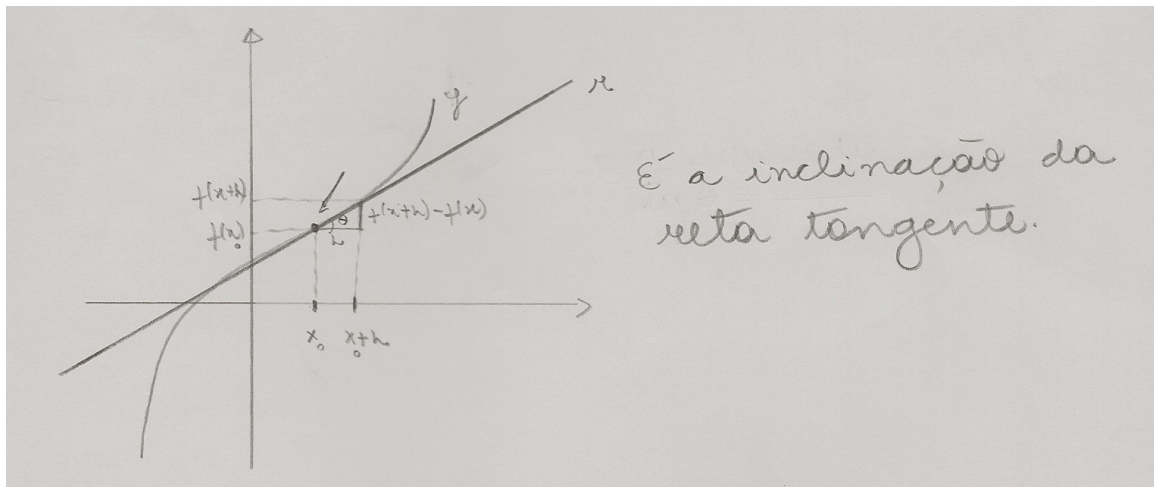 r
f
f(x+h)
f(x₀)
θ
h
f(x+h)-f(x)
x₀
x₀+h
É a inclinação da
reta tangente.